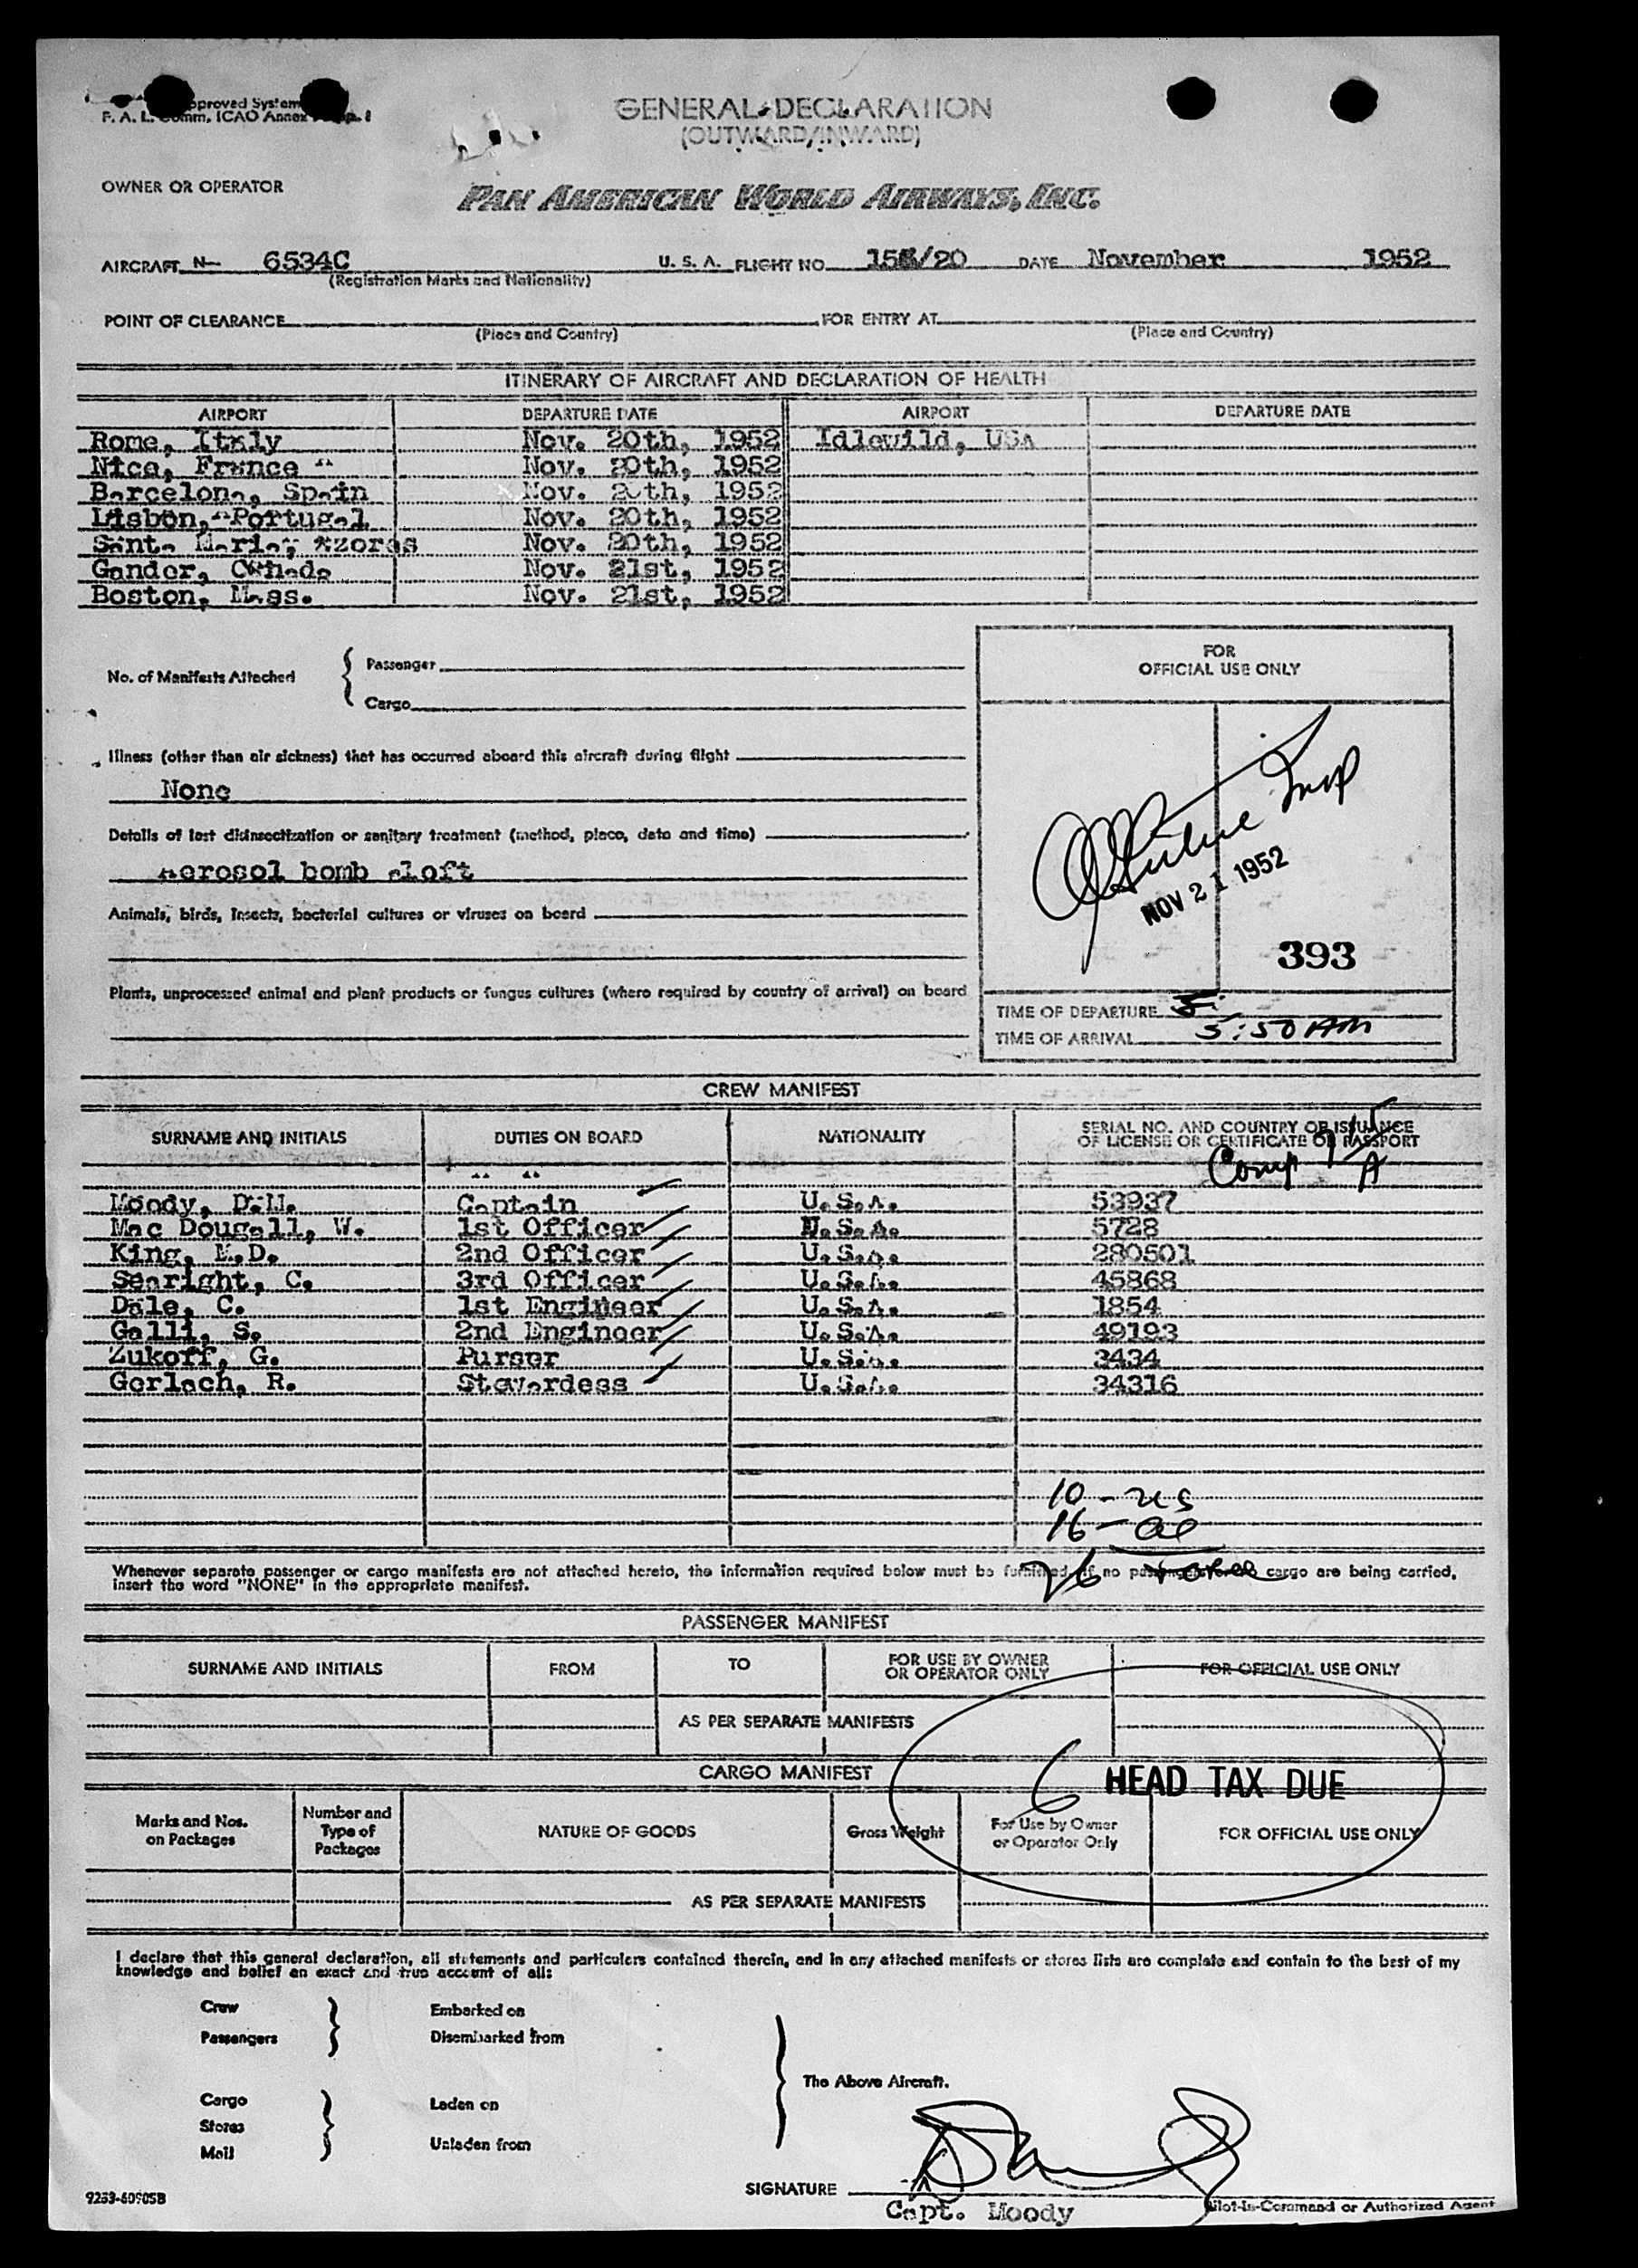 GENERAL DECLARATION
(OUTWARD/INWARD)
pproved System
F. A. L. Comm. ICAO Annex
OWNER OR OPERATOR
PAN AMERICAN WORLD AIRWAYS, INC.
AIRCRAFT N- 6534C U. S. A. FLIGHT NO. /20 DATE November 1952
(Registration Marks and Nationality)
POINT OF CLEARANCE FOR ENTRY AT
(Place and Country) (Place and Country)
ITINERARY OF AIRCRAFT AND DECLARATION OF HEALTH
AIRPORT DEPARTURE DATE AIRPORT DEPARTURE DATE
Rome, Italy Nov. 20th, 1952 Idlewild, USA
Nice, France Nov. 20th, 1952
Barcelona, Spain Nov. 20th, 1952
Lisbon, Portugal Nov. 20th, 1952
Santa Maria, Azores Nov. 20th, 1952
Gander, Canada Nov. 21st, 1952
Boston, Mass. Nov. 21st, 1952
No. of Manifests Attached
Passenger
Cargo
FOR
OFFICIAL USE ONLY
Illness (other than air sickness) that has occurred aboard this aircraft during flight
None
Details of last disinsectization or sanitary treatment (method, place, date and time)
Aerosol bomb aloft
NOV 21 1952
Animals, birds, insects, bacterial cultures or viruses on board
393
Plants, unprocessed animal and plant products or fungus cultures (where required by country of arrival) on board
TIME OF DEPARTURE
TIME OF ARRIVAL 5:50 AM
CREW MANIFEST
SURNAME AND INITIALS DUTIES ON BOARD NATIONALITY SERIAL NO. AND COUNTRY OF ISSUANCE
OF LICENSE OR CERTIFICATE OR PASSPORT
Comp A
Moody, D.M. Captain U.S.A. 53937
Mac Dougall, W. 1st Officer U.S.A. 5728
King, M.D. 2nd Officer U.S.A. 280501
Searight, C. 3rd Officer U.S.A. 45868
Dale, C. 1st Engineer U.S.A. 1854
Galli, S. 2nd Engineer U.S.A. 49193
Zukoff, G. Purser U.S.A. 3434
Gerlach, R. Stewardess U.S.A. 34316
10 - US
16 - al
26 Total
Whenever separate passenger or cargo manifests are not attached hereto, the information required below must be furnished. If no passengers or no cargo are being carried,
insert the word "NONE" in the appropriate manifest.
PASSENGER MANIFEST
SURNAME AND INITIALS FROM TO FOR USE BY OWNER
OR OPERATOR ONLY FOR OFFICIAL USE ONLY
AS PER SEPARATE MANIFESTS
CARGO MANIFEST
6 HEAD TAX DUE
Marks and Nos.
on Packages
Number and
Type of
Packages
NATURE OF GOODS
Gross Weight
For Use by Owner
or Operator Only
FOR OFFICIAL USE ONLY
AS PER SEPARATE MANIFESTS
I declare that this general declaration, all statements and particulars contained therein, and in any attached manifests or stores lists are complete and contain to the best of my
knowledge and belief an exact and true account of all:
Crew Embarked on
Passengers Disembarked from
The Above Aircraft.
Cargo Laden on
Stores
Mail Unladen from
SIGNATURE
Capt. Moody
Pilot-in-Command or Authorized Agent
9253-60905B